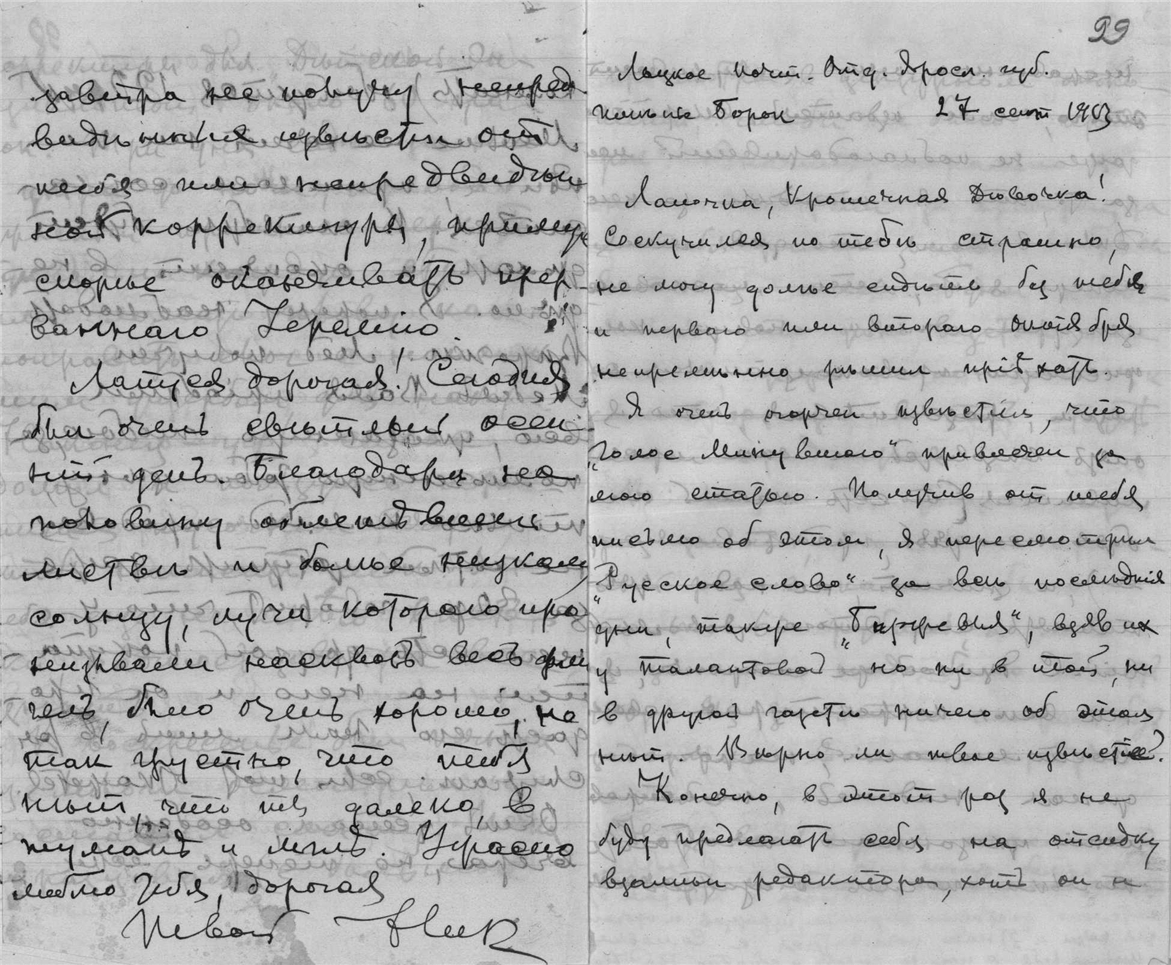 завтра не получу непред
видѣнныя извѣстія отъ
тебя или непредвидѣн
ной корректуры, примусь
скорѣе оканчивать прер-
ваннаго
Лапуся дорогая! Сегодня
былъ очень свѣтлый осен-
ній день. Благодаря на
половину облетѣвшей
листвѣ и болѣе низкому
солнцу, лучи котораго про
низывали насквозь весь
было очень хорошо, но
так грустно, что тебя
нѣт, что ты далеко, в
туманѣ и мглѣ. Ужасно
люблю Тебя, дорогая
Твой
99
Лацкое почт. Отд. Яросл. губ.
имѣніе Борок 27 сент 1913
Лапочка, Крошечная Дѣвочка!
Соскучился по тебѣ страшно,
не могу долѣе сидѣть без тебя
и перваго или втораго октября
непремѣнно рѣшил пріѣхать.
Я очень огорчен извѣстіем, что
„Голос Минувшаго“ привлечен за
мою статью. Получив от тебя
письмо об этом, я пересмотрѣл
„Русское слово“ за всѣ послѣдніе
дни, также „Биржевыя“, взяв их
у но ни в той, ни
в другой газетѣ ничего об этом
нѣт. Вѣрно ли твое извѣстіе?
Конечно, в этот раз я не
буду предлагать себя на отсидку
взамѣн редактора, хоть он и